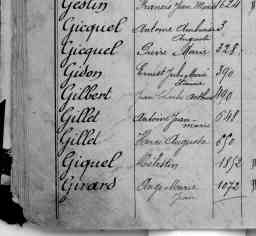 Geslin Francis Jean Marie 624
Gicquel Antoine Ambroise 3
Auguste
Gicquel Pierre Marie 328
Gidon Ernest Jules Marie 390
Gilbert Jean Charles Arthur 490
Gillet Antoine Jean 648
Marie
Gillet Henri Auguste 650
Giquel Célestin 1852
Girard Ange Marie 1072
Jean